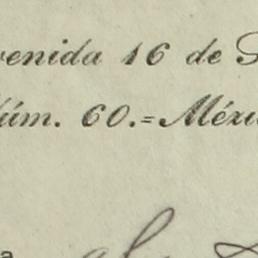 venida 16 de S
úm. 60.=Méxi
a